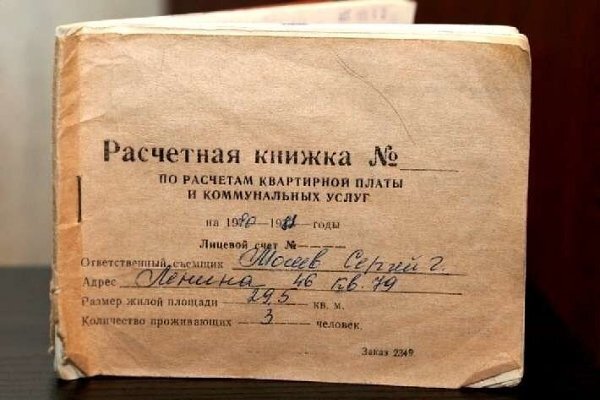 Расчетная книжка №
ПО РАСЧЕТАМ КВАРТИРНОЙ ПЛАТЫ
И КОММУНАЛЬНЫХ УСЛУГ
на 1980—1981—годы
Лицевой счет №
Ответственный съемщик Мосеев Сергей Г.
Адрес Ленина 46 кв. 79
Размер жилой площади 29,5 кв. м.
Количество проживающих 3 человек.
Заказ 2349